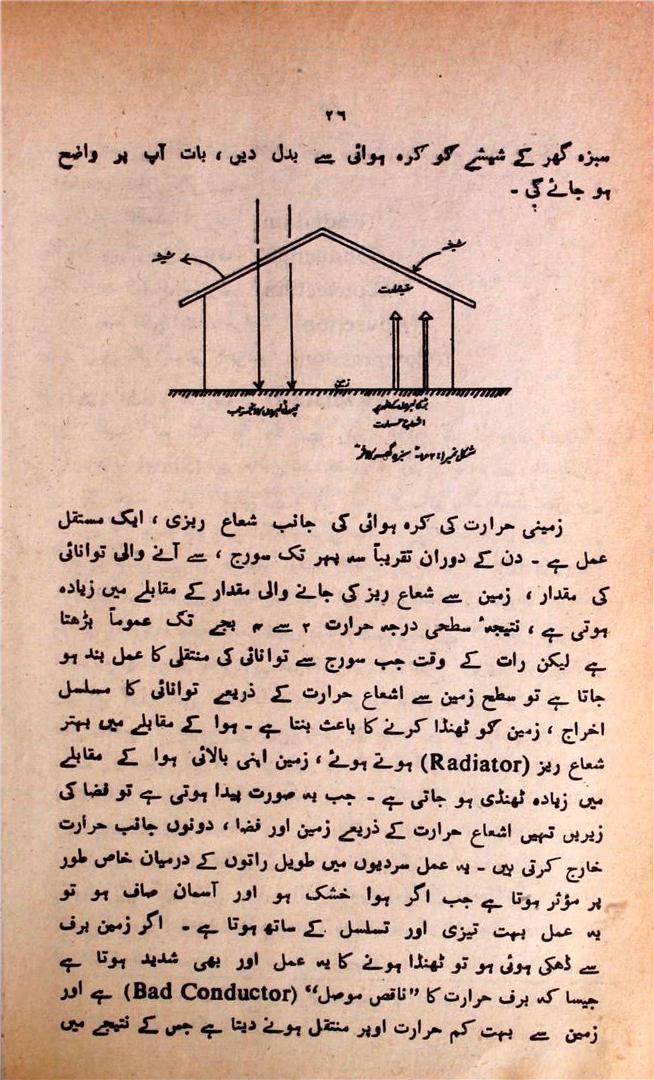 ۲۶
سبزہ گھر کے شیشے کو کرہ ہوائی سے بدل دیں ، بات آپ پر واضح
ہو جائے گی ۔
شیشہ
شیشہ
زمین
زمینی حرارت کی کرہ ہوائی کی جانب شعاع ریزی ، ایک مستقل
عمل ہے ۔ دن کے دوران تقریباً سہ پہر تک سورج ، سے آنے والی توانائی
کی مقدار ، زمین سے شعاع ریز کی جانے والی مقدار کے مقابلے میں زیادہ
ہوتی ہے ، نتیجہً سطحی درجہ حرارت ۲ سے ۴ بجے تک عموماً بڑھتا
ہے لیکن رات کے وقت جب سورج سے توانائی کی منتقلی کا عمل بند ہو
جاتا ہے تو سطح زمین سے اشعاع حرارت کے ذریعے توانائی کا مسلسل
اخراج ، زمین کو ٹھنڈا کرنے کا باعث بنتا ہے ۔ ہوا کے مقابلے میں بہتر
شعاع ریز (Radiator) ہوتے ہوئے ، زمین اپنی بالائی ہوا کے مقابلے
میں زیادہ ٹھنڈی ہو جاتی ہے ۔ جب یہ صورت پیدا ہوتی ہے تو فضا کی
زیریں تہیں اشعاع حرارت کے ذریعے زمین اور فضا ، دونوں جانب حرارت
خارج کرتی ہیں ۔ یہ عمل سردیوں میں طویل راتوں کے درمیان خاص طور
پر مؤثر ہوتا ہے جب اگر ہوا خشک ہو اور آسمان صاف ہو تو
یہ عمل بہت تیزی اور تسلسل کے ساتھ ہوتا ہے ۔ اگر زمین برف
سے ڈھکی ہوئی ہو تو ٹھنڈا ہونے کا یہ عمل اور بھی شدید ہوتا ہے
جیسا کہ برف حرارت کا ”ناقص موصل“ (Bad Conductor) ہے اور
زمین سے بہت کم حرارت اوپر منتقل ہونے دیتا ہے جس کے نتیجے میں